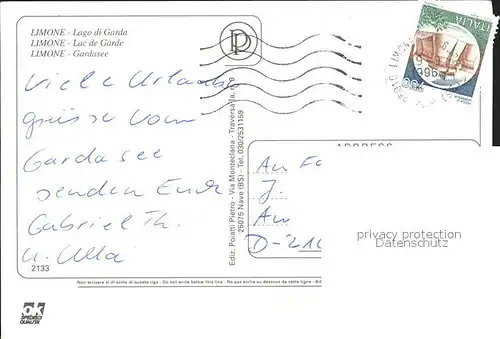 LIMONE - Lago di Garda
LIMONE - Lac de Garde
LIMONE - Gardasee
Viele Urlaubs
grüsse vom
Gardasee
senden Euch
Gabriel Th.
u. Ulla
2133
Ediz. Poiatti Pietro - Via Monteclana - Traversa
25075 Nave (BS) - Tel. 030/2531159
ITALIA
996
ADDRESS
An
J.
An
D-21
privacy protection
Datenschutz
Non scrivere al di sotto di questa riga - Do not write below this line - Ne pas écrire au dessous de cette ligne
OK
SPEDISCI
QUALITA'